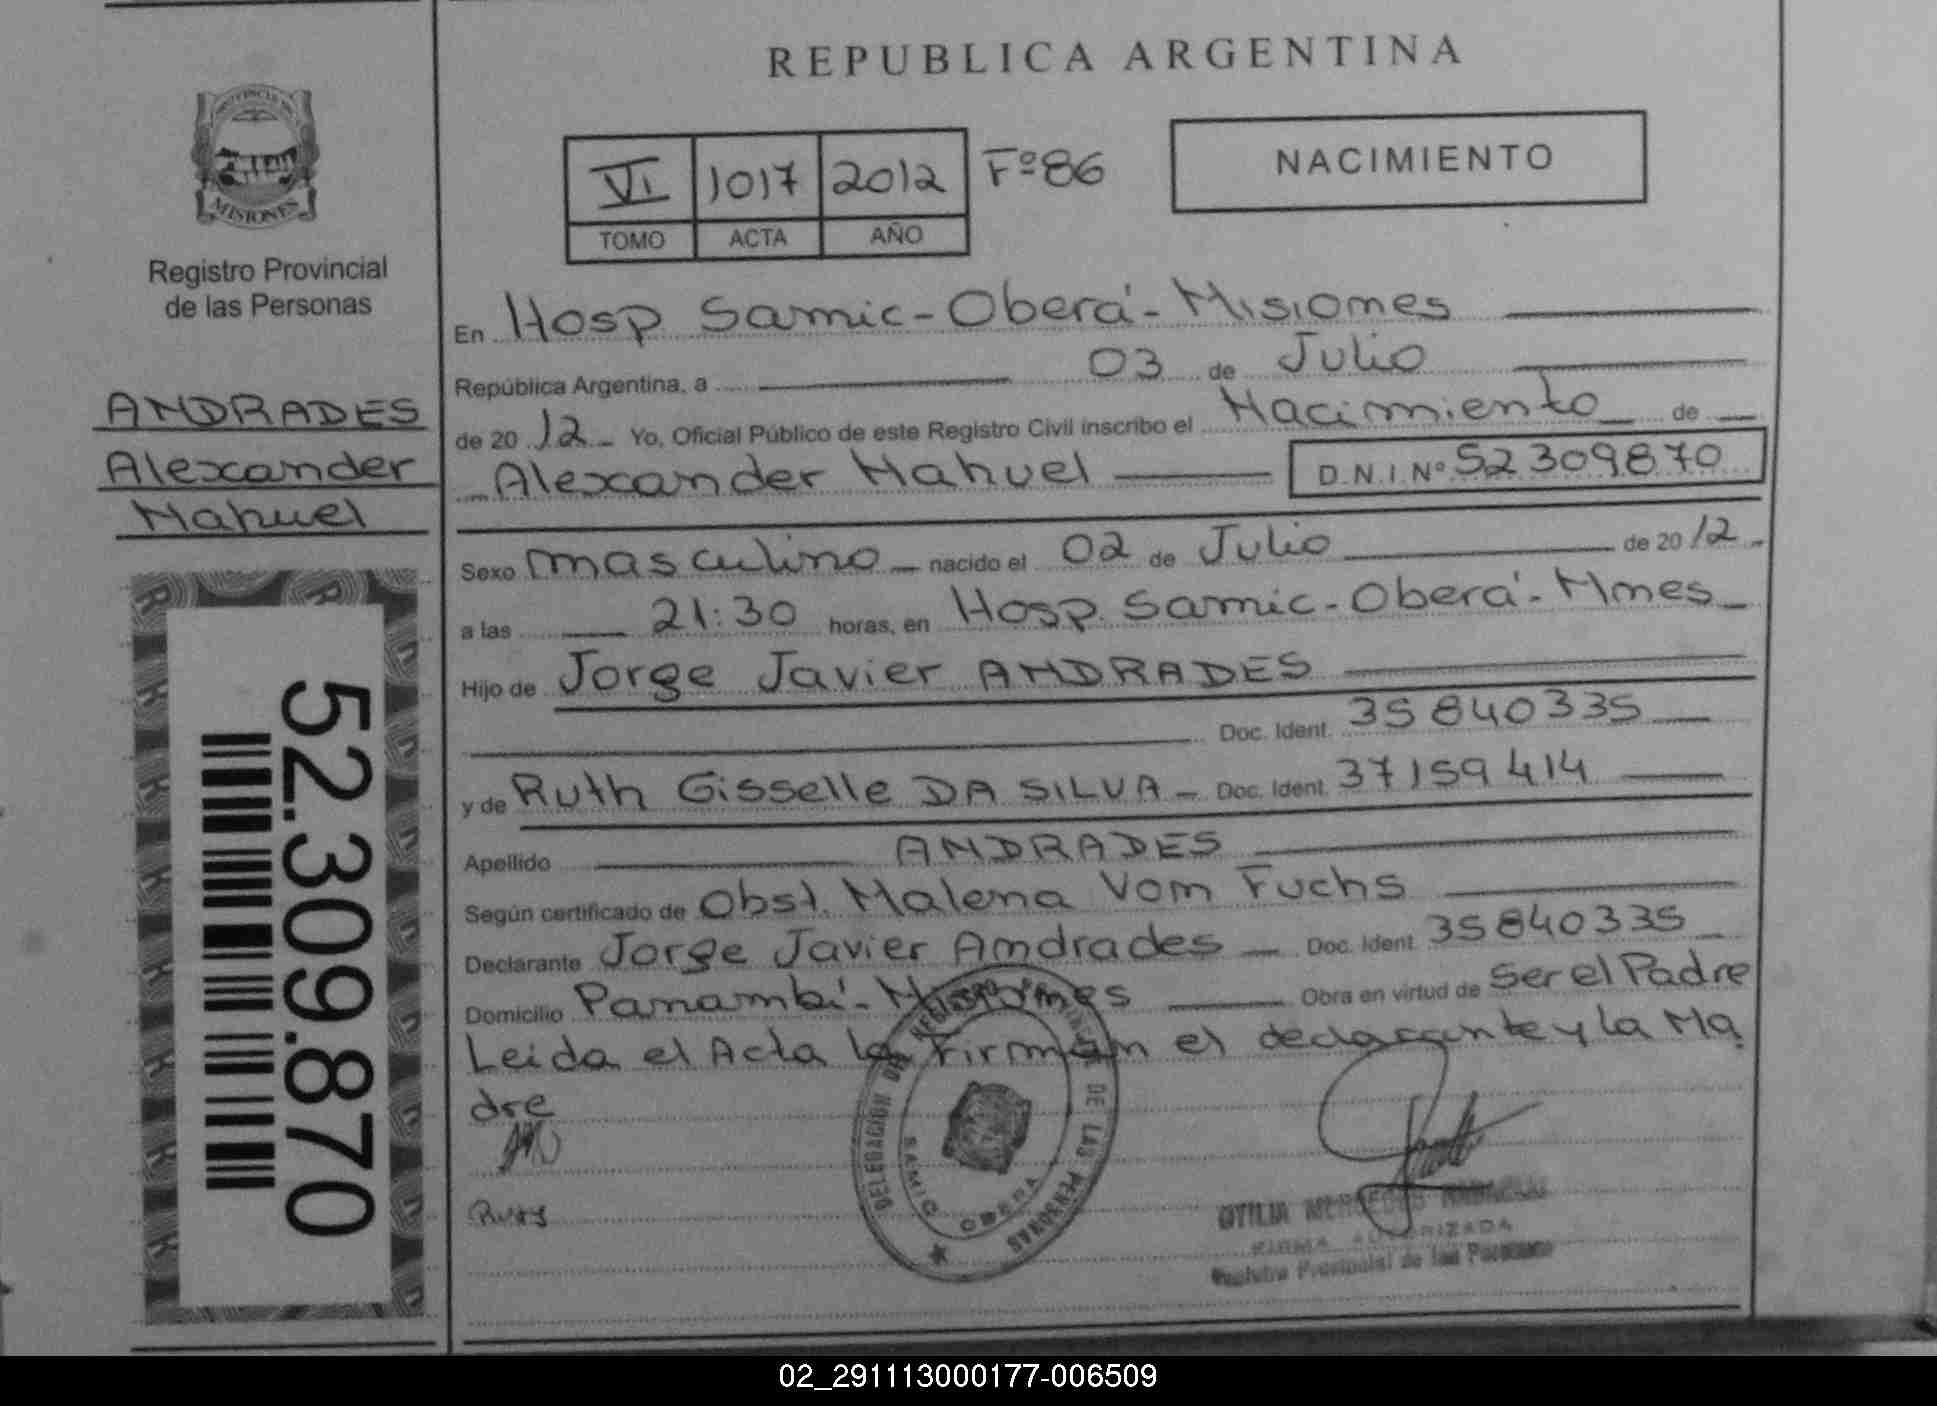 REPUBLICA ARGENTINA
PROVINCIA DE
MISIONES
Registro Provincial
de las Personas
VI 1017 2012 Fº 86
TOMO ACTA AÑO
NACIMIENTO
ANDRADES
Alexander
Nahuel
52.309.870
En Hosp Samic - Oberá - Misiones
República Argentina, a 03 de Julio
de 20 12 Yo, Oficial Público de este Registro Civil inscribo el Nacimiento de
Alexander Nahuel D.N.I. Nº 52309870
Sexo masculino nacido el 02 de Julio de 20 12
a las 21:30 horas, en Hosp. Samic - Oberá - Mnes
Hijo de Jorge Javier ANDRADES
Doc. Ident. 35840335
y de Ruth Gisselle DA SILVA Doc. Ident. 37159414
Apellido ANDRADES
Según certificado de Obst. Malena Von Fuchs
Declarante Jorge Javier Andrades Doc. Ident. 35840335
Domicilio Panambí - Misiones Obra en virtud de Ser el Padre
Leida el Acta la Firman el declarante y la Ma
dre
DELEGACION DEL REGISTRO PROVINCIAL DE LAS PERSONAS
SAMIC OBERA
OTILIA MERCEDES
FIRMA AUTORIZADA
Registro Provincial de las Personas
02_291113000177-006509